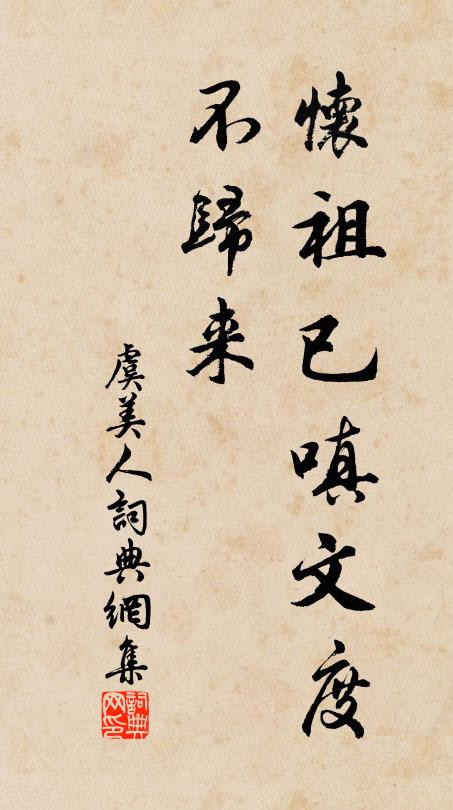 懷祖已嗔文度
不歸来
虞美人詞典網集
詞典网印